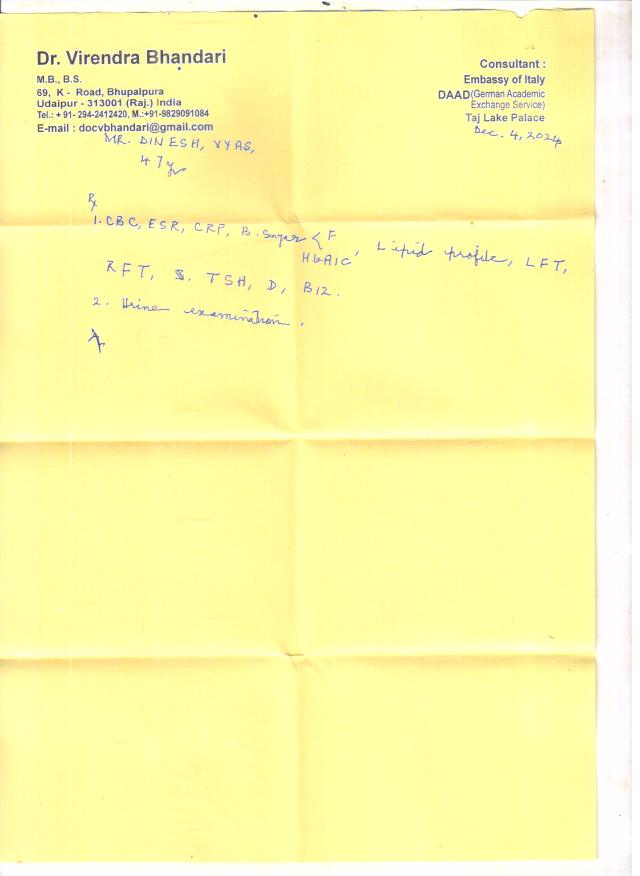 Dr. Virendra Bhandari
M.B., B.S.
69, K - Road, Bhupalpura
Udaipur - 313001 (Raj.) India
Tel.: + 91- 294-2412420, M.:+91-9829091084
E-mail : docvbhandari@gmail.com
Consultant :
Embassy of Italy
DAAD(German Academic
Exchange Service)
Taj Lake Palace
Dec. 4, 2024
MR. DINESH, VYAS,
47 yr
Rx
1. CBC, ESR, CRP, B. Sugar < F
HbA1C, Lipid profile, LFT,
RFT, S. TSH, D, B12.
2. Urine examination.